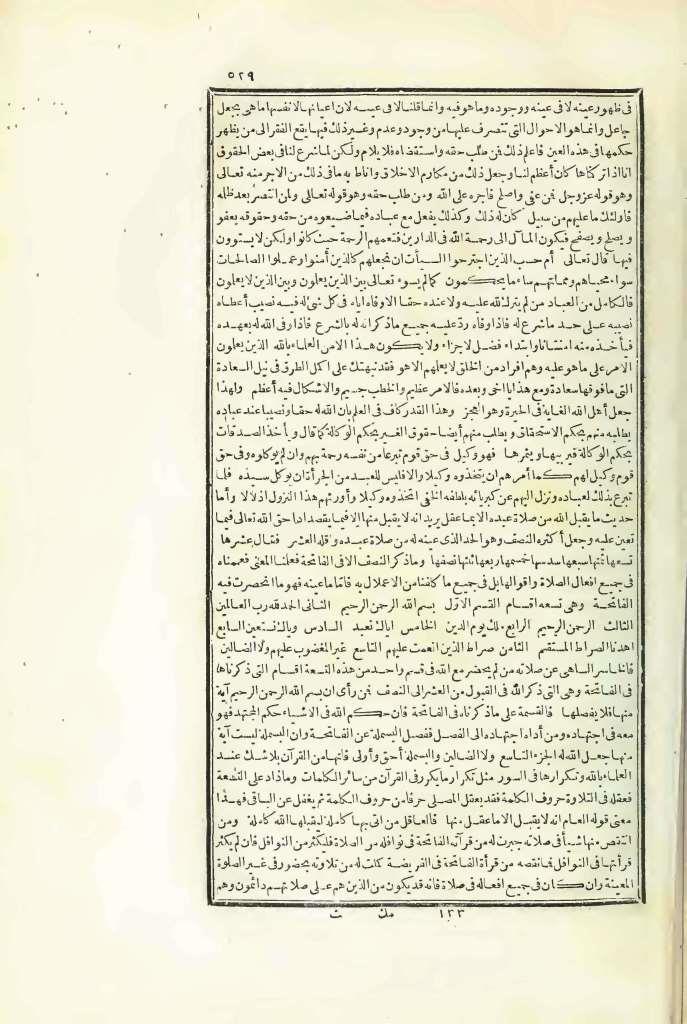 ٥٢٩
فى ظهور عينه لا فى عينه ووجوده وما هو فيه وانما قلنا لا فى عينه لان اعيانها لانفسها ماهى بجعل
جاعل وانما هو الاحوال التى تتصرف عليها من وجود وعدم وغير ذلك فيها يقع الفقر الى من يظهر
حكمها فى هذه العين فاعلم ذلك فمن طلب حقه واستقضاه فلا يلام ولكن لما شرع لنا فى بعض الحقوق
انا اذا تركناها كان أعظم لنا وجعل ذلك من مكارم الاخلاق واناط به مافى ذلك من الاجر منه تعالى
وهو قوله عز وجل فمن عفى واصلح فاجره على الله ومن طلب حقه وهو قوله تعالى ولمن انتصر بعد ظلمه
فاولئك ما عليهم من سبيل كان له ذلك وكذلك يفعل مع عباده فيما ضيعوه من حقه وحقوقه يعفو
ويصلح ويصفح فيكون المآل الى رحمة الله فى الدارين فتعمهم الرحمة حيث كانوا ولكن لا يستوون
فيها قال تعالى أم حسب الذين اجترحوا السيآت ان نجعلهم كالذين آمنوا وعملوا الصالحات
سواء محياهم ومماتهم ساء ما يحكمون كما لم يسوء تعالى بين الذين يعلمون وبين الذين لا يعلمون
فالكامل من العباد من لم يترك لله عليه ولا عنده حقا الا وفاه اياه فى كل شئ له فيه نصيب أعطاه
نصيبه على حد ما شرع له فاذا وفاه ردّ عليه جميع ما ذكر انه له بالشرع فاذا وفى الله له بعهده
فيأخذه منه امتنانا وابتداء فضل لاجزاء ولا يكون هذا الامن العلماء بالله الذين يعلمون
الامر على ماهو عليه وهم افراد من الخلق لا يعلمهم الا هو فقد نبهتك على اكمل الطرق فى نيل السعادة
التى مافوقها سعادة ومع هذا يا اخى وبعده فالامر عظيم والخطب جسيم والاشكال فيه أعظم ولهذا
جعل أهل الله الغاية فى الحيرة وهو العجز وهذا القدر كاف فى العلم بان لله حقا ونصيبا عند عباده
يطلبه منهم بحكم الاستحقاق ويطلب منهم أيضا حقوق الغير بحكم الوكالة كما قال ويأخذ الصدقات
بحكم الوكالة فيربيها ويثمرها فهو وكيل فى حق قوم تبرعا من نفسه رحمة بهم وان لم يوكلوه وفى حق
قوم وكيل لهم كما أمرهم ان يتخذوه وكيلا والا فليس للعبد من الجرأة ان يوكل سيده فلما
تبرع بذلك لعباده ونزل اليهم عن كبريائه بلطفه الخفى اتخذوه وكيلا وأورثهم هذا النزول اذلالا وأما
حديث ما يقبل الله من صلاة عبده الا بما عقل يريد انه لا يقبل منها الا فيما يقصد اداحق الله تعالى فيما
تعين عليه وجعل أكثره النصف وهو الحد الذى عينه له من صلاة عبده وأقله العشر فقال عشرها
تسعها ثمنها سبعها سدسها خمسها ربعها ثلثها نصفها وما ذكر النصف الا فى الفاتحة فعلمنا المعنى فعممناه
فى جميع افعال الصلاة واقوالها بل فى جميع ما كلفنا من الاعمال به فاما ما عينه فهو ما انحصرت فيه
الفاتحة وهى تسعة اقسام القسم الاول بسم الله الرحمن الرحيم الثانى الحمد لله رب العالمين
الثالث الرحمن الرحيم الرابع ملك يوم الدين الخامس اياك نعبد السادس واياك نستعين السابع
اهدنا الصراط المستقيم الثامن صراط الذين انعمت عليهم التاسع غير المغضوب عليهم ولا الضالين
فالخاسر الساهى عن صلاته من لم يحضر مع الله فى قسم واحد من هذه التسعة اقسام التى ذكرناها
فى الفاتحة وهى التى ذكر الله فى القبول من العشر الى النصف فمن رأى ان بسم الله الرحمن الرحيم آية
منها فلا يفصلها فالقسمة على ما ذكرناه فى الفاتحة فان حكم الله فى الاشياء حكم المجتهد فهو
معه فى اجتهاده ومن أداه اجتهاده الى الفصل ففصل البسملة عن الفاتحة وان البسملة ليست آية
منها جعل الله له الجزء التاسع ولا الضالين والبسملة أحق وأولى فانها من القرآن بلاشك عند
العلماء بالله وتكرارها فى السور مثل تكرار ما يكرر فى القرآن من سائر الكلمات ومازاد على التسعة
فعقله فى التلاوة حروف الكلمة فقد يعقل المصلى حرفا من حروف الكلمة ثم يغفل عن الباقى فهذا
معنى قوله العام انه لا يقبل الا ما عقل منها فالعاقل من اتى بها كاملة ليقبلها الله كاملة ومن
انتقص منها شيأ فى صلاته جبرت له من قراءته الفاتحة فى نوافله من الصلاة فليكثر من النوافل فان لم يكثر
قرأتها فى النوافل فما نقصه من قرأة الفاتحة فى الفريضة كملت له من تلاوته بحضور فى غير الصلوة
المعينة وان كان فى جميع افعاله فى صلاة فانه قد يكون من الذين هم على صلاتهم دائمون وهم
١٣٣ مك ت